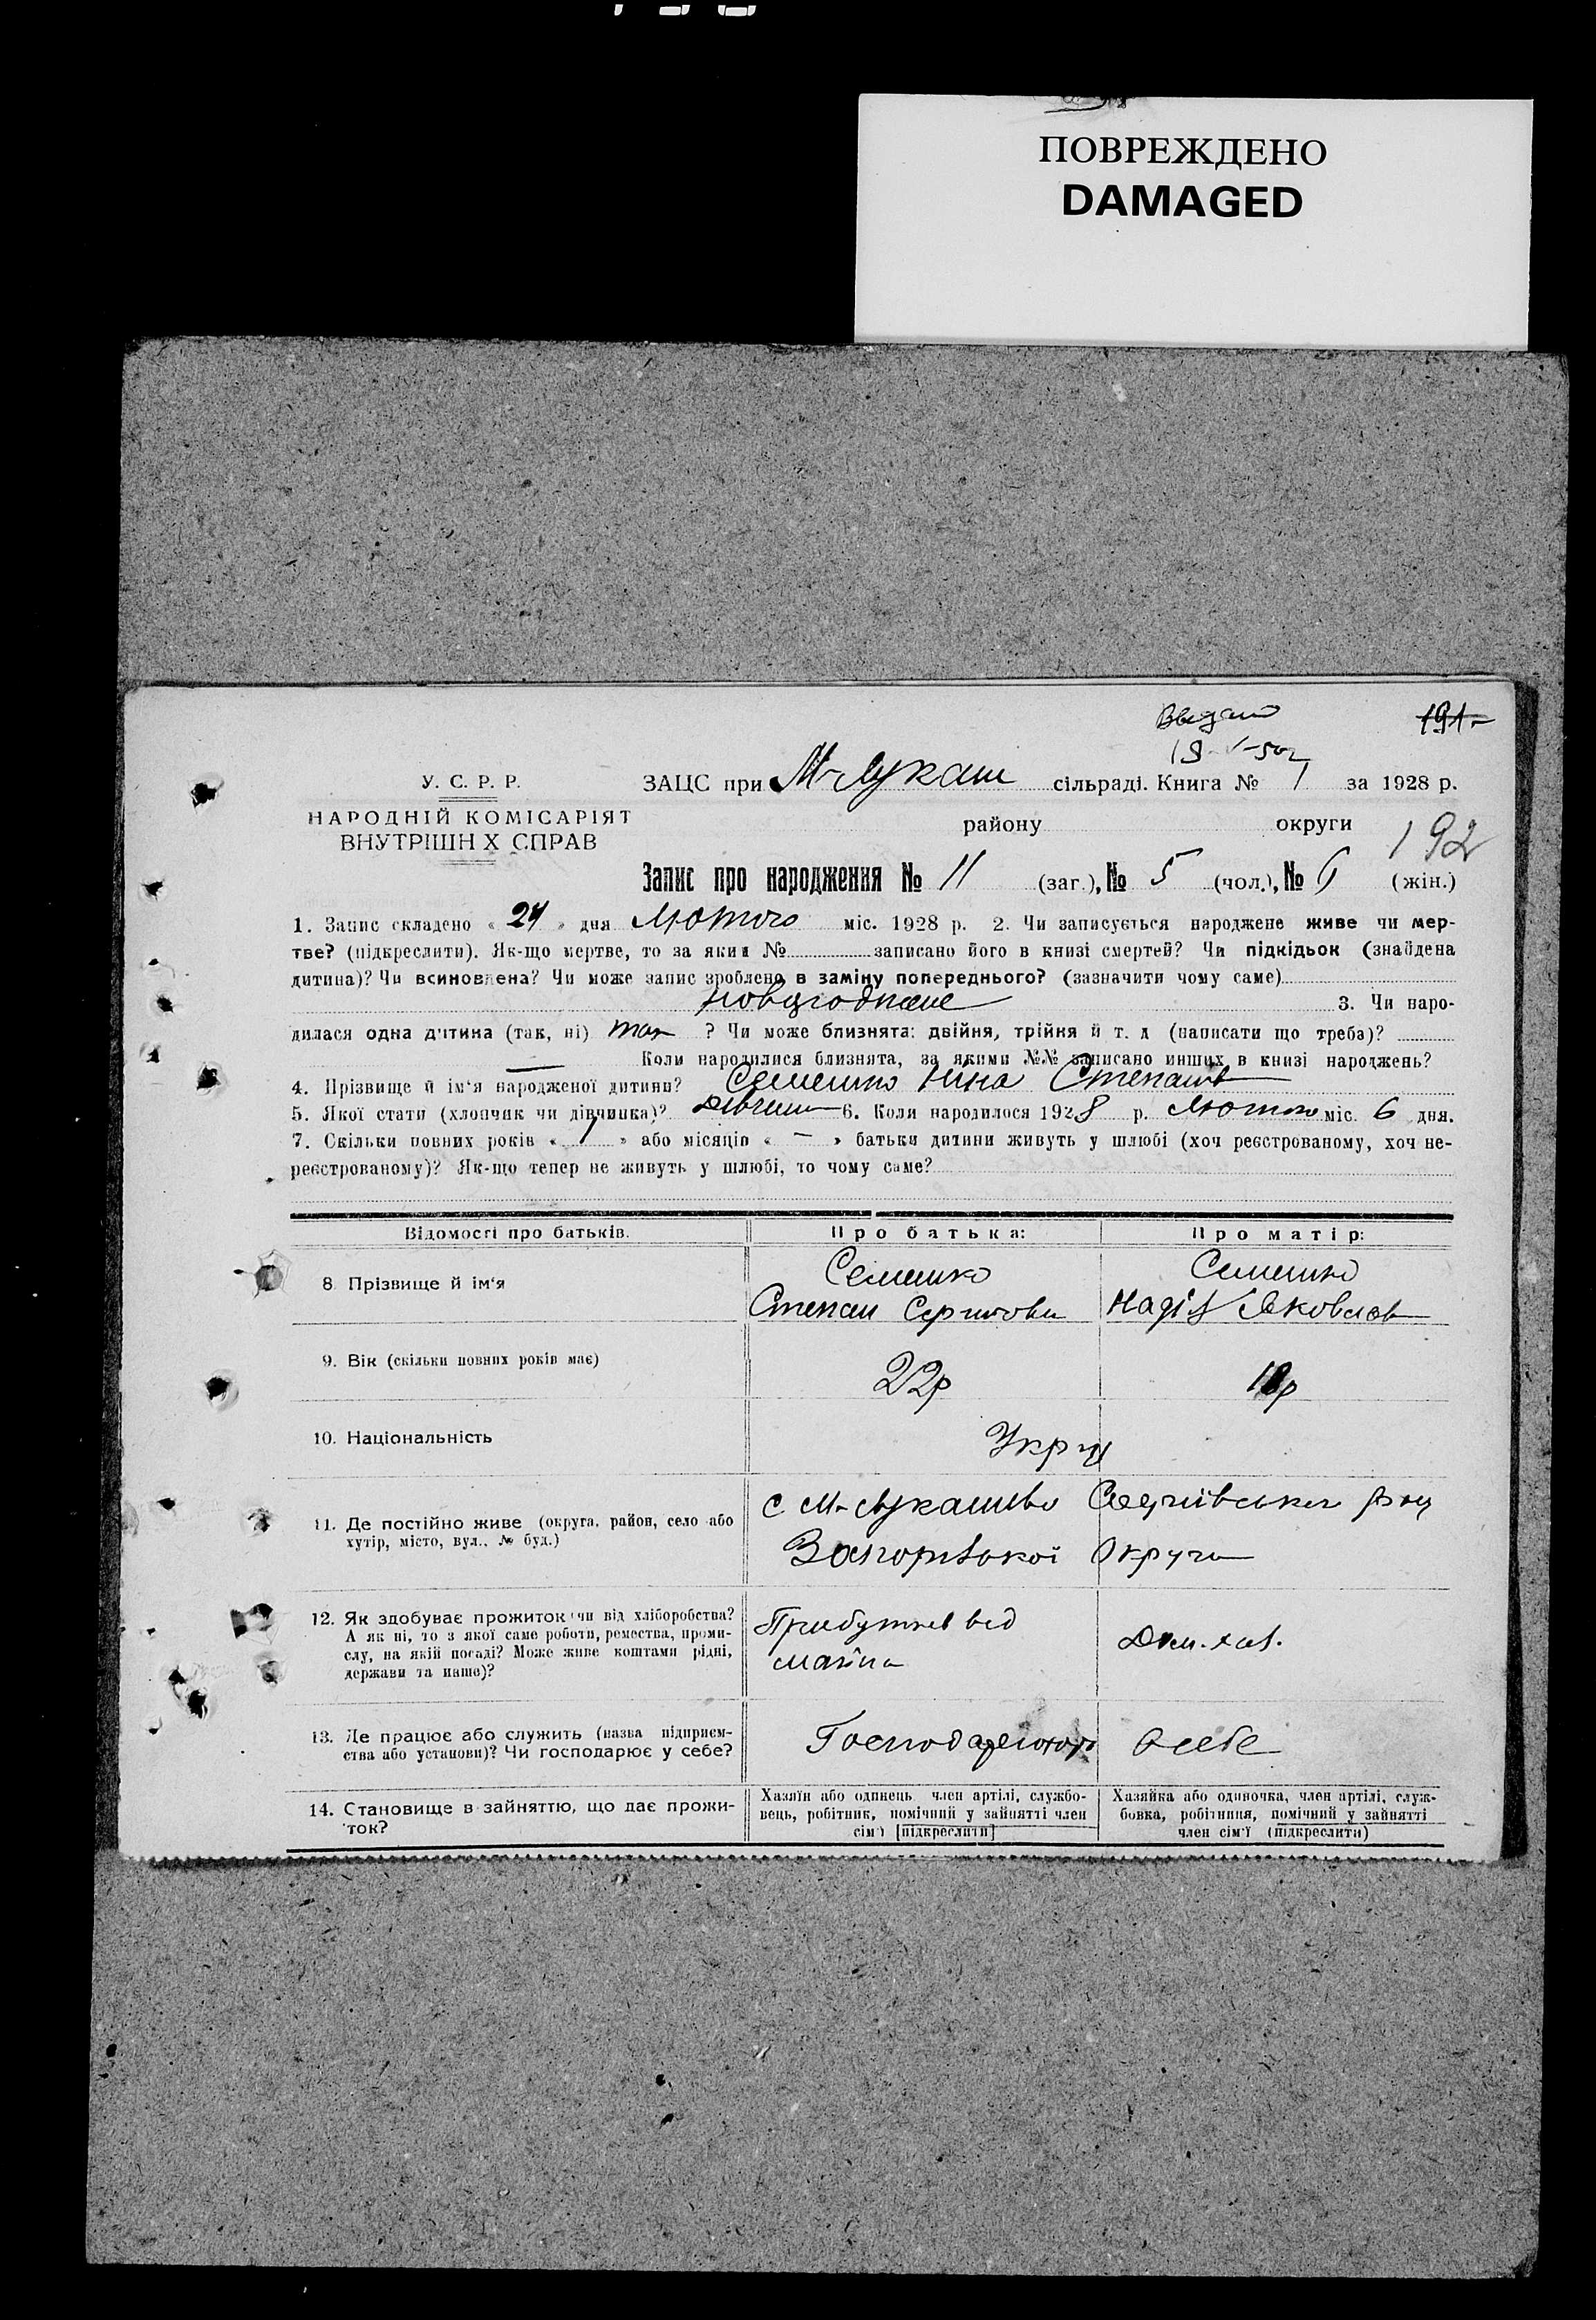 ПОВРЕЖДЕНО
DAMAGED
191
У. С. Р. Р.
НАРОДНІЙ КОМІСАРІЯТ
ВНУТРІШН Х СПРАВ
ЗАЦС при М-Лукаш сільраді. Книга № 1 за 1928 р.
району округи 192
Запис про народження № 11 (заг.), № 5 (чол.), № 6 (жін.)
1. Запис складено « 24 » дня Лютого міс. 1928 р. 2. Чи записується народжене живе чи мер-
тве? (підкреслити). Як-що мертве, то за яким № записано його в книзі смертей? Чи підкідьок (знайдена
дитина)? Чи всиновлена? Чи може запис зроблено в заміну попереднього? (зазначити чому саме)
3. Чи наро-
дилася одна дитина (так, ні) так ? Чи може близнята: двійня, трійня й т. д (написати що треба)?
— Коли народилися близнята, за якими №№ записано инших в книзі народжень?
4. Прізвище й ім'я народженої дитини? Семешко Ніна Степанів
5. Якої стати (хлопчик чи дівчинка)? Дівчин 6. Коли народилося 1928 р. Лютого міс. 6 дня.
7. Скільки повних років « 1 » або місяців « — » батьки дитини живуть у шлюбі (хоч реєстрованому, хоч не-
реєстрованому)? Як-що тепер не живуть у шлюбі, то чому саме?
Відомості про батьків. Про батька: Про матір:
8. Прізвище й ім'я Семешко Семешко
Степан Надія Яковлев
9. Вік (скільки повних років має) 22р 18р
10. Національність Укр
11. Де постійно живе (округа, район, село або
хутір, місто, вул., № буд.)
с М-Лукашево
Запорізької Округи
12. Як здобуває прожиток (чи від хліборобства?
А як ні, то з якої саме роботи, ремества, проми-
слу, на якій посаді? Може живе коштами рідні,
держави та инше)?
Прибутків від Дом. хаз.
13. Де працює або служить (назва підприєм-
ства або установи)? Чи господарює у себе?
Господарюють у себе
14. Становище в зайняттю, що дає прожи-
ток?
Хазяїн або одинець, член артілі, службо-
вець, робітник, помічний у зайнятті член
сім'ї [підкреслити]
Хазяйка або одиночка, член артілі, служ-
бовка, робітниця, помічний у зайнятті
член сім'ї (підкреслити)